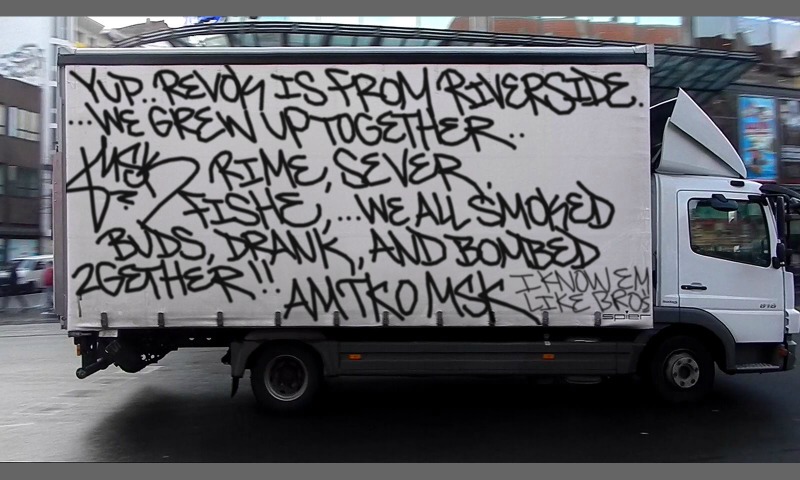 YUP.. REVOK IS FROM RIVERSIDE.
...WE GREW UP TOGETHER..
MSK RIME, SEVER
FISHE, ...WE ALL SMOKED
BUDS, DRANK, AND BOMBED
2GETHER!!
AMTKO MSK
I KNOW EM
LIKE BROS
spier
818